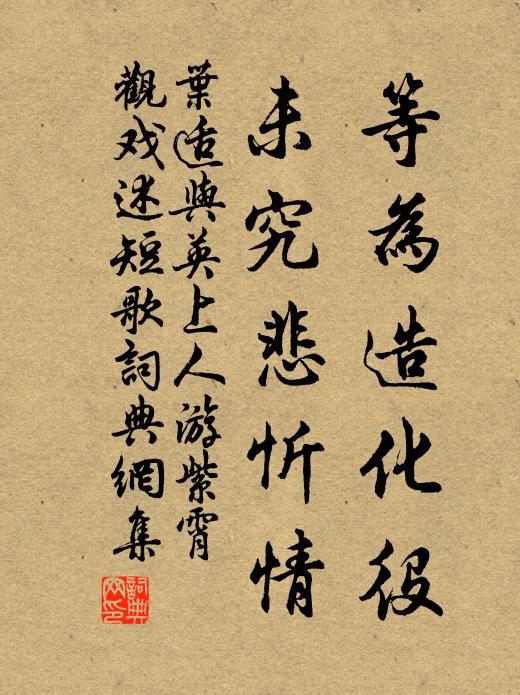 等為造化役
未究悲忻情
葉适與英上人游紫霄
觀戏述短歌詞典網集
詞典网印